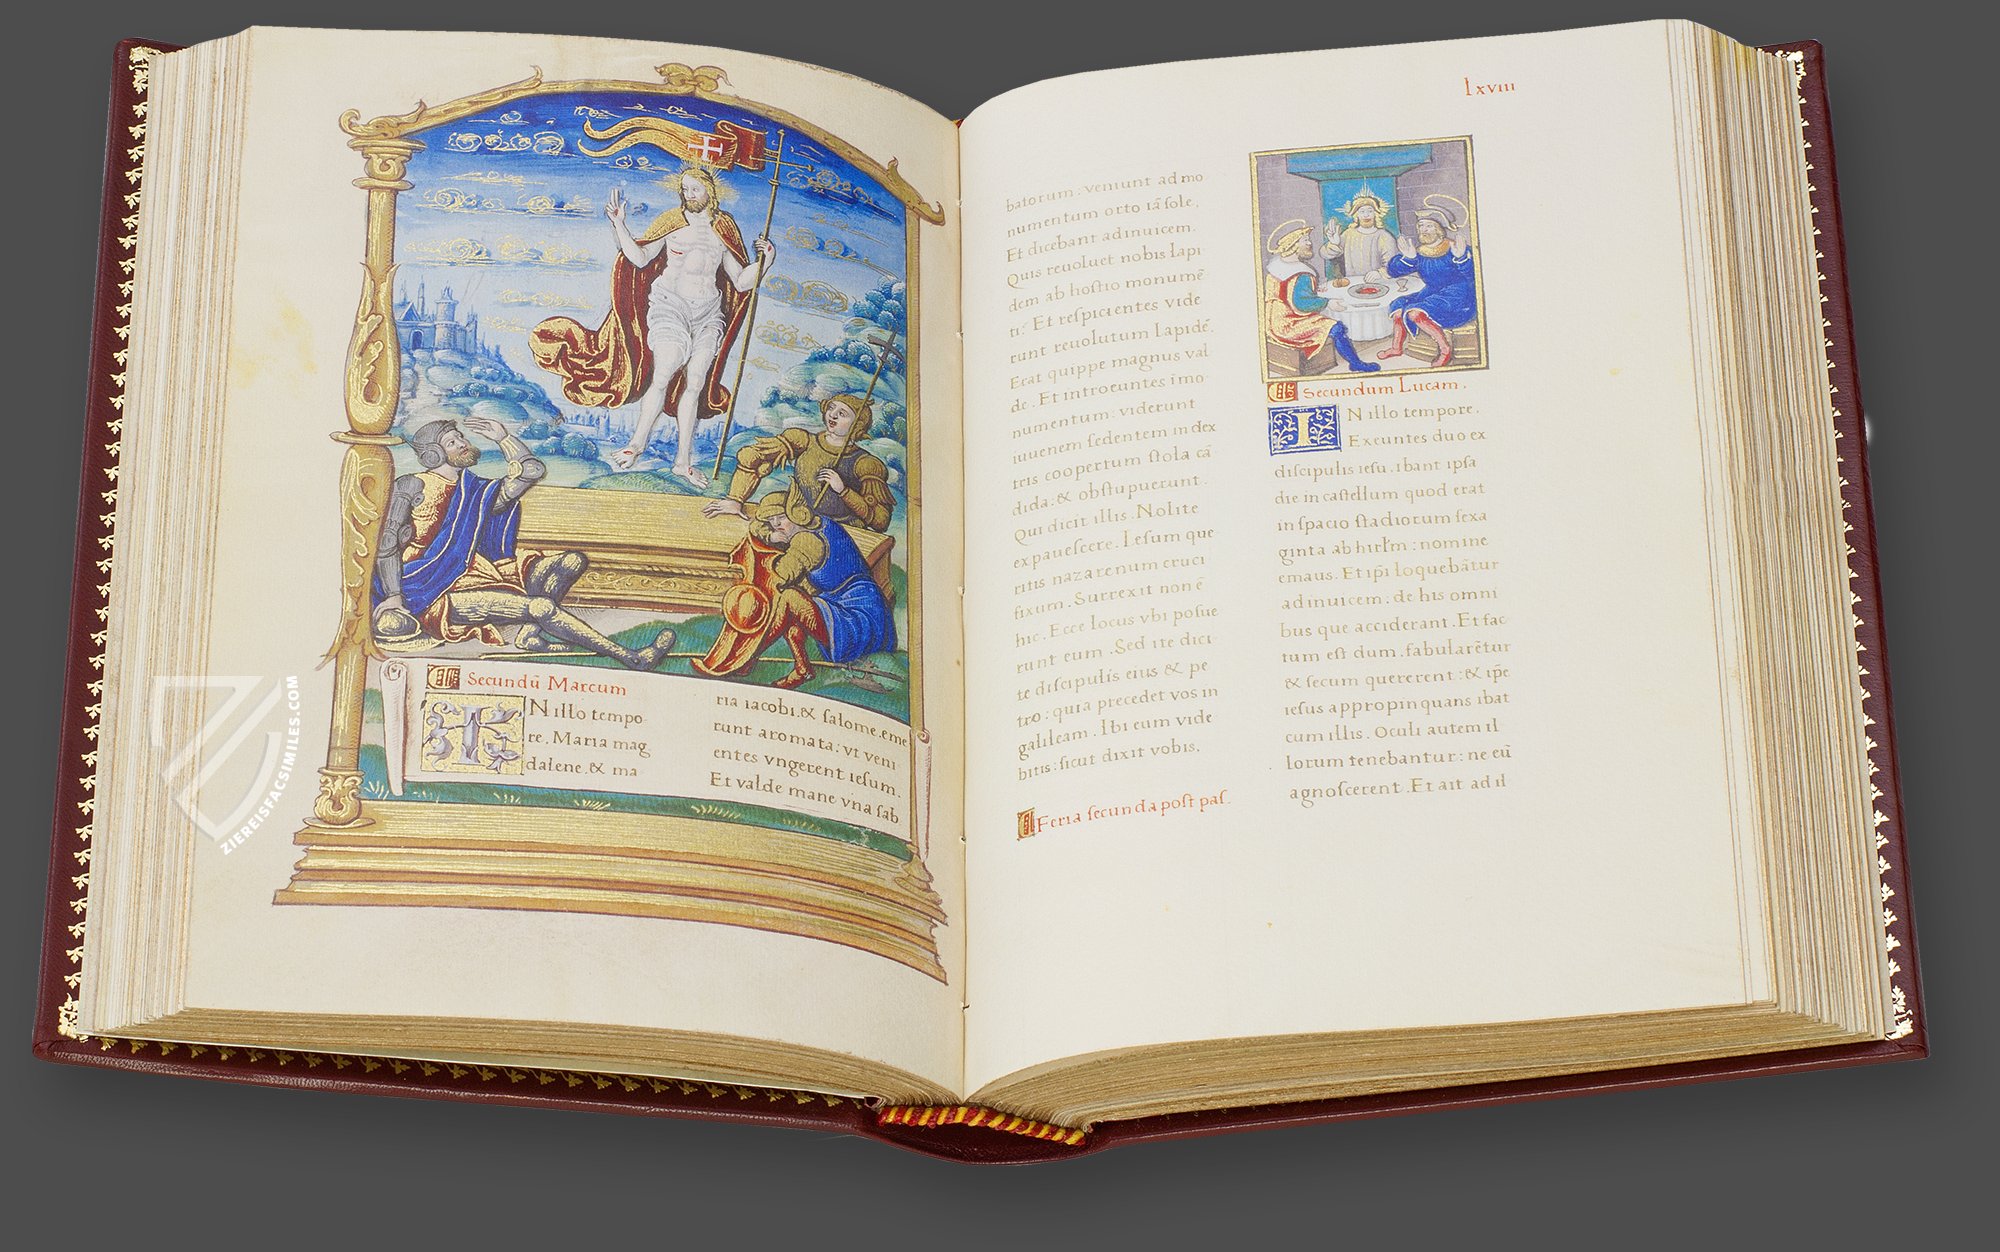 Secundũ Marcum
IN illo tempo-
re. Maria mag
dalene. & ma-
ria iacobi. & salome. eme
runt aromata: vt veni
entes vngerent iesum.
Et valde mane vna sab
lxviii
batorum: veniunt ad mo
numentum orto iā sole.
Et dicebant adinuicem.
Quis reuoluet nobis lapi
dem ab hostio monumē
ti? Et respicientes vide
runt reuolutum lapidē.
Erat quippe magnus val
de. Et introeuntes i mo
numentum: viderunt
iuuenem sedentem in dex
tris coopertum stola cā
dida: & obstupuerunt.
Qui dicit illis. Nolite
expauescere. Iesum que
ritis nazarenum cruci
fixum. Surrexit non ē
hic. Ecce locus vbi posue
runt eum. Sed ite dici-
te discipulis eius & pe
tro: quia precedet vos in
galileam. Ibi eum vide
bitis: sicut dixit vobis.
Feria secunda post pas.
Secundum Lucam.
IN illo tempore.
Exeuntes duo ex
discipulis iesu. ibant ipsa
die in castellum quod erat
in spacio stadiorum sexa
ginta ab hirlm: nomine
emaus. Et ipi loquebātur
adinuicem: de his omni
bus que acciderant. Et fac
tum est dum. fabularētur
& secum quererent: & ipe
iesus appropinquans ibat
cum illis. Oculi autem il
lorum tenebantur: ne eū
agnoscerent. Et ait ad il
ZIEREISFACSIMILES.COM